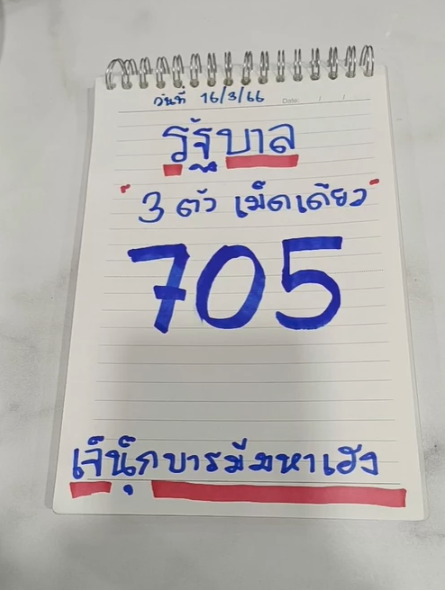 วันที่ 16/3/66 Date / /
รัฐบาล
"3 ตัว เม็ดเดียว"
705
เจ๊นุ๊กบารมีมหาเฮง